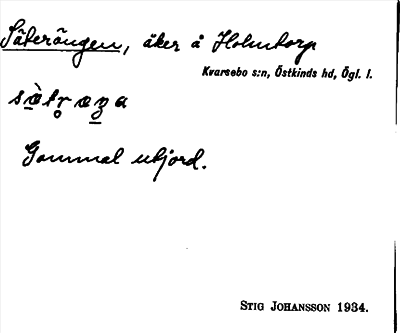 Säterängen, åker å Holmtorp
Kvarsebo s:n, Östkinds hd, Ögl. l.
Gammal utjord.
STIG JOHANSSON 1934.